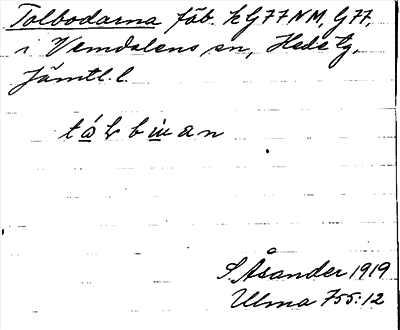 Tolbodarna fäb. k G77NM, G77,
i Vemdalens sn, Hede tg,
Jämtl. l.
S. Åsander 1919
Ulma 755:12